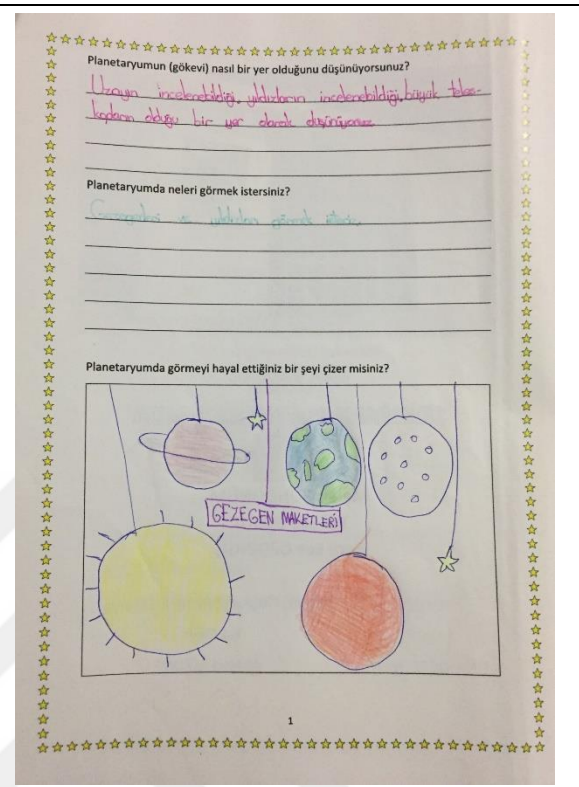 Planetaryumun (gökevi) nasıl bir yer olduğunu düşünüyorsunuz?
Uzayın incelenebildiği, yıldızların incelenebildiği, büyük teles-
kopların olduğu bir yer olarak düşünüyoruz
Planetaryumda neleri görmek istersiniz?
Gezegenleri ve yıldızları görmek isteriz.
Planetaryumda görmeyi hayal ettiğiniz bir şeyi çizer misiniz?
GEZEGEN MAKETLERİ
1